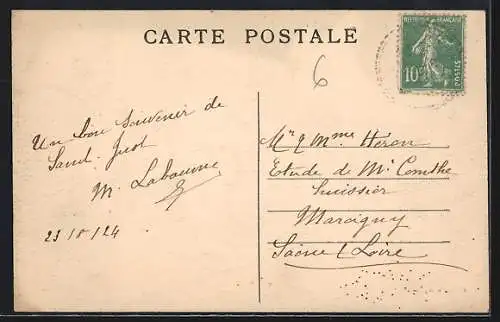 CARTE POSTALE
RÉPUBLIQUE FRANÇAISE
10c
POSTES
6
Un bon Souvenir de
M. Labaume
Mr & Mme Heron
Etude de Mr Comthe
Huissier
Marcigny
Saône & Loire